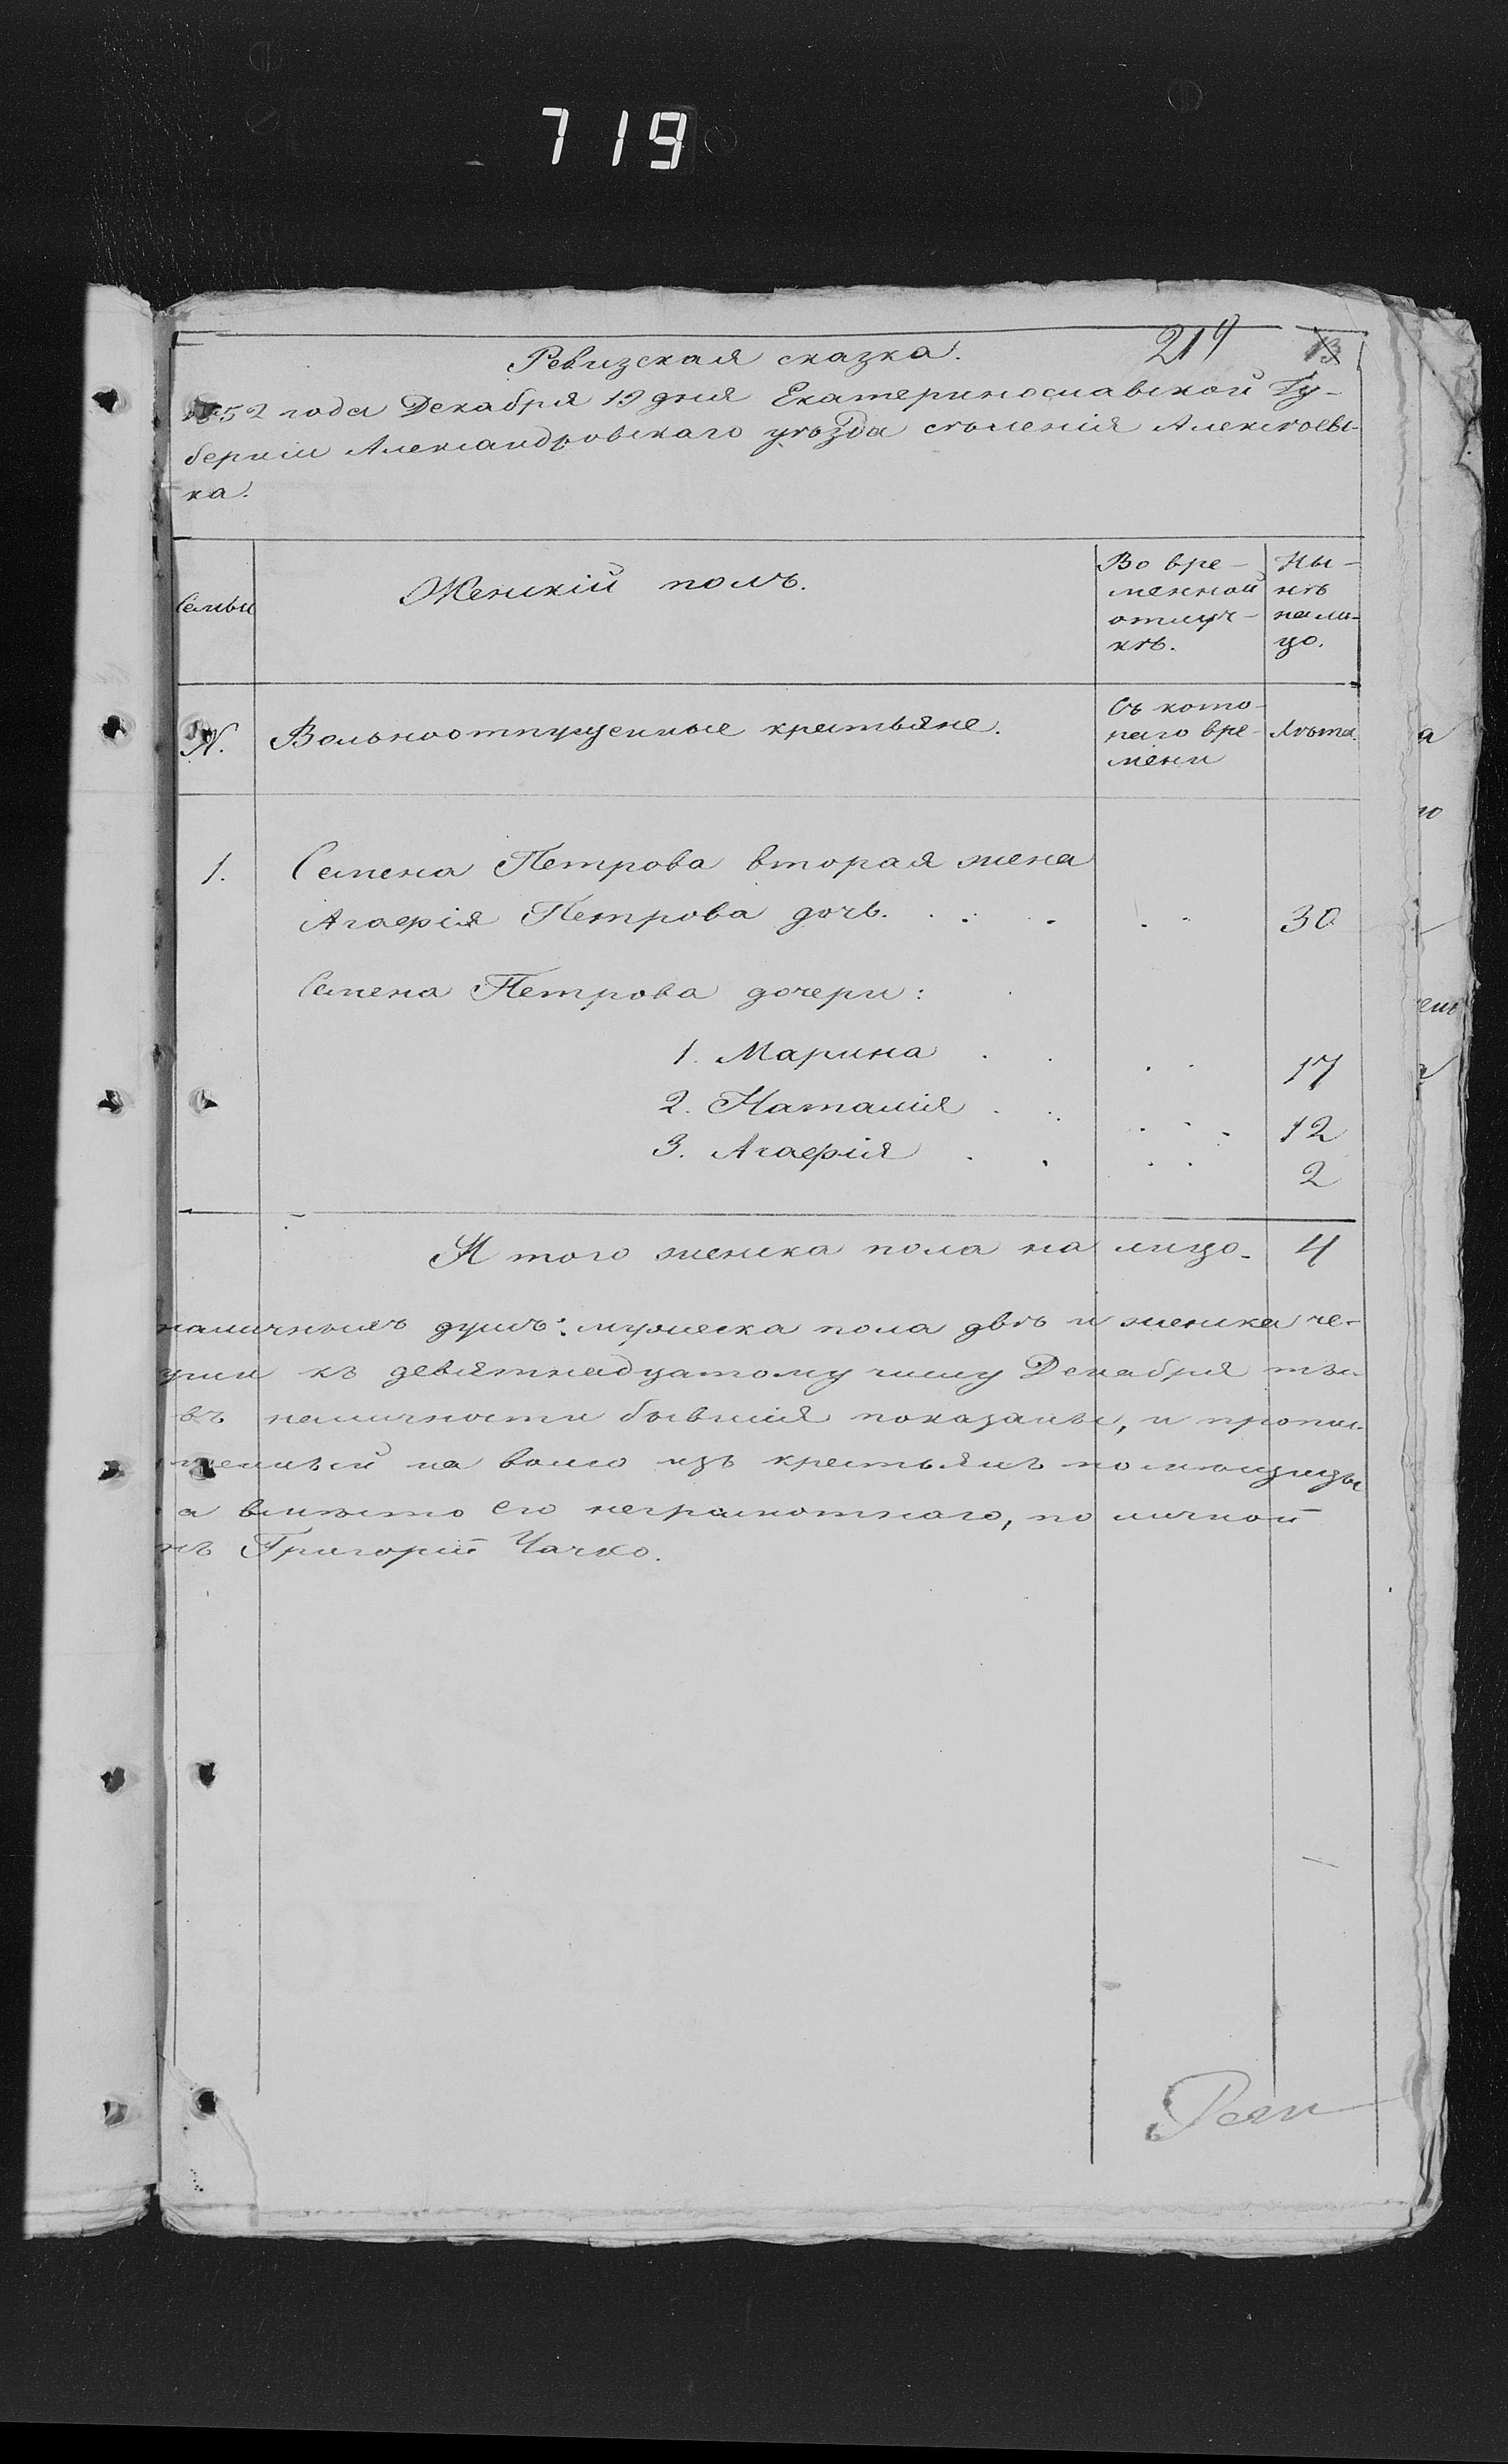 719
219 13
Ревизская сказка.
1852 года Декабря 19 дня Екатеринославской Гу-
берніи Александровскаго уѣзда сѣленія Алексѣевы-
ка.
Семьи Женскій полъ. Во вре- Ны-
менной нѣ
отлуч- на ли-
кѣ. цо.
N. Вольноотпущенные крестьяне. Съ кото- Лѣта.
раго вре-
мени
1. Семена Петрова вторая жена
Агафія Петрова дочь. 30
Семена Петрова дочери:
1. Марина 17
2. Наталія 12
3. Агафія 2
И того женска пола на лицо. 4
наличныхъ душъ: мужеска пола двѣ и женска че-
къ девятнадцатому числу Декабря
въ наличности бывшія показаны, и
на волю изъ крестьянъ помѣщицы
а вмѣсто его неграмотнаго, по личной
нъ Григорій Чачко.